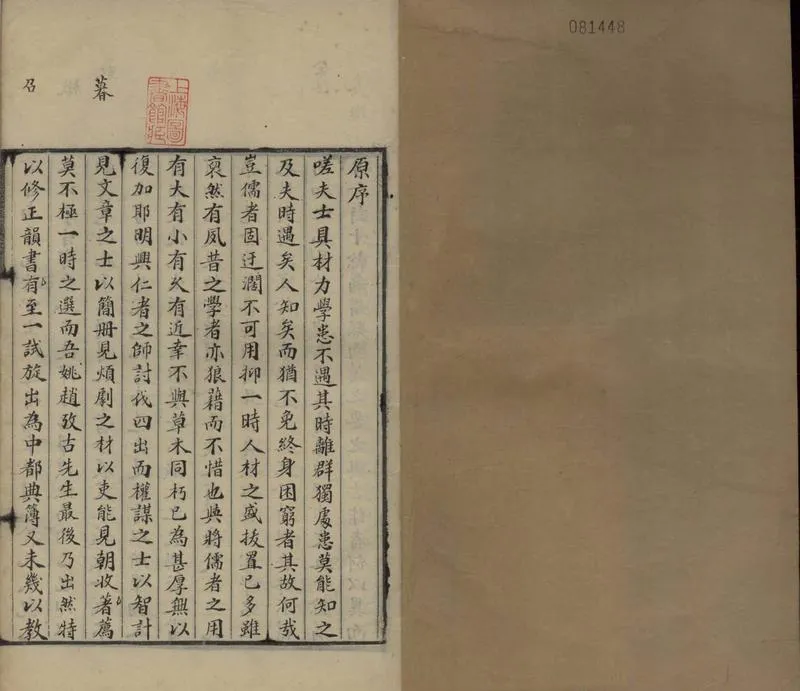 081448
上海圖
書館藏
暮
召
原序
嗟夫士具材力學患不遇其時離群獨處患莫能知之
及夫時遇矣人知矣而猶不免終身困窮者其故何哉
豈儒者固迂濶不可用抑一時人材之盛拔置已多雖
裒然有夙昔之學者亦狼藉而不惜也與將儒者之用
有大有小有久有近幸不與草木同朽已為甚厚無以
復加耶明興仁者之師討伐四出而權謀之士以智計
見文章之士以簡冊見煩劇之材以吏能見朝收著薦
莫不極一時之選而吾姚趙攷古先生最後乃出然特
以修正韻書有至一試旋出為中都典簿又未幾以教